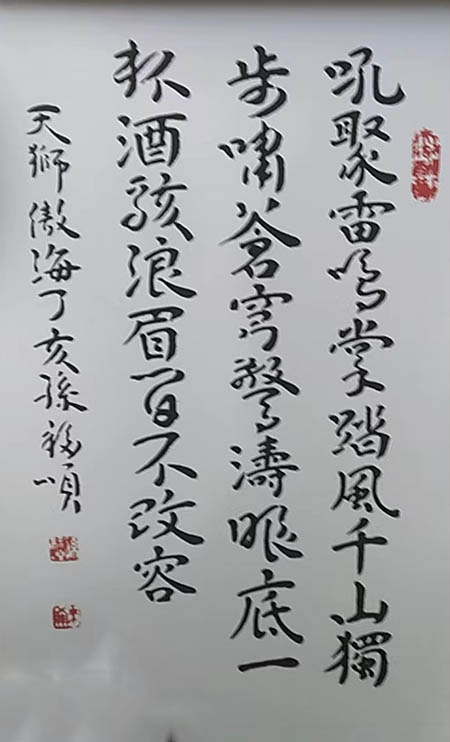 吼聚雷鳴掌踏風千山獨
步嘯蒼穹驚濤眼底一
杯酒駭浪眉間不改容
天獅傲海丁亥孫福